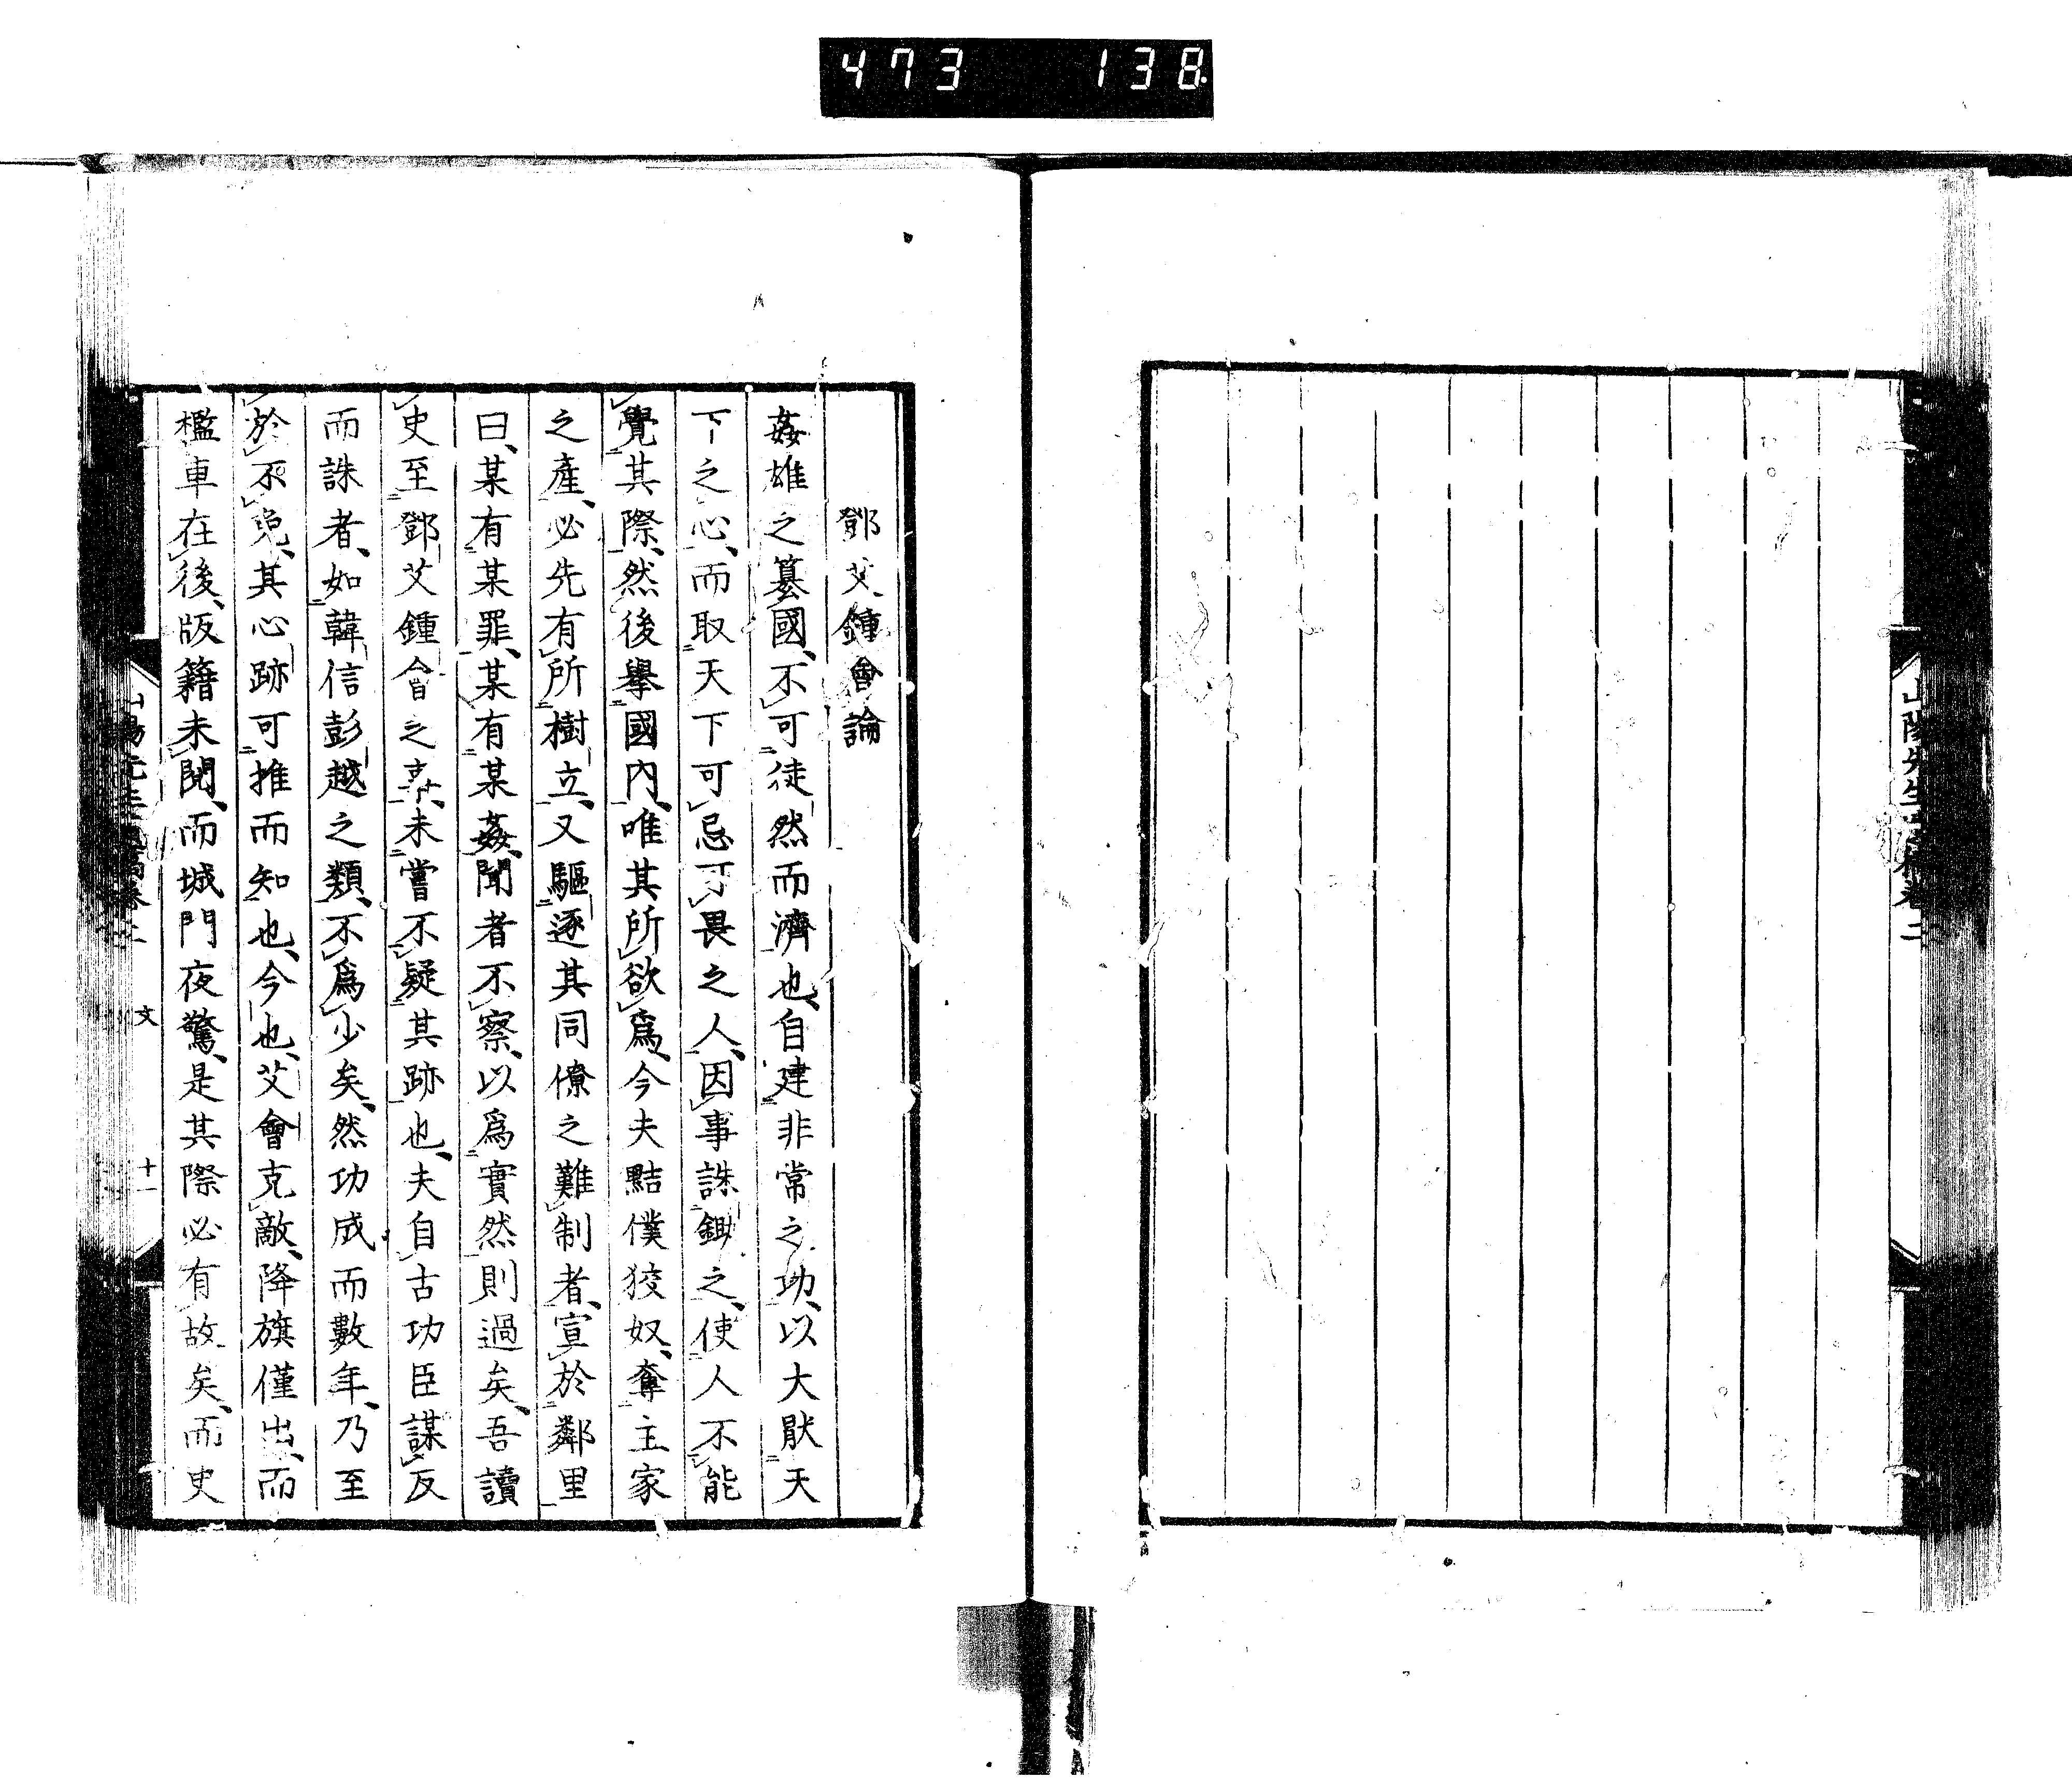 473 138
鄧艾鍾會論
姦雄之簒國、不可徒然而濟也、自建非常之功、以大厭天
下之心、而取天下可忌可畏之人、因事誅鋤之、使人不能
覺其際、然後擧國內、唯其所欲爲、今夫黠僕狡奴、奪主家
之產、必先有所樹立、又驅逐其同僚之難制者、宣於鄰里
曰、某有某罪、某有某姦、聞者不察、以爲實然則過矣、吾讀
史至鄧艾鍾會之事、未嘗不疑其跡也、夫自古功臣謀反
而誅者、如韓信彭越之類、不爲少矣、然功成而數年、乃至
於不免、其心跡可推而知也、今也、艾會克敵、降旗僅出、而
檻車在後、版籍未閱、而城門夜驚、是其際必有故矣、而史
文
十一